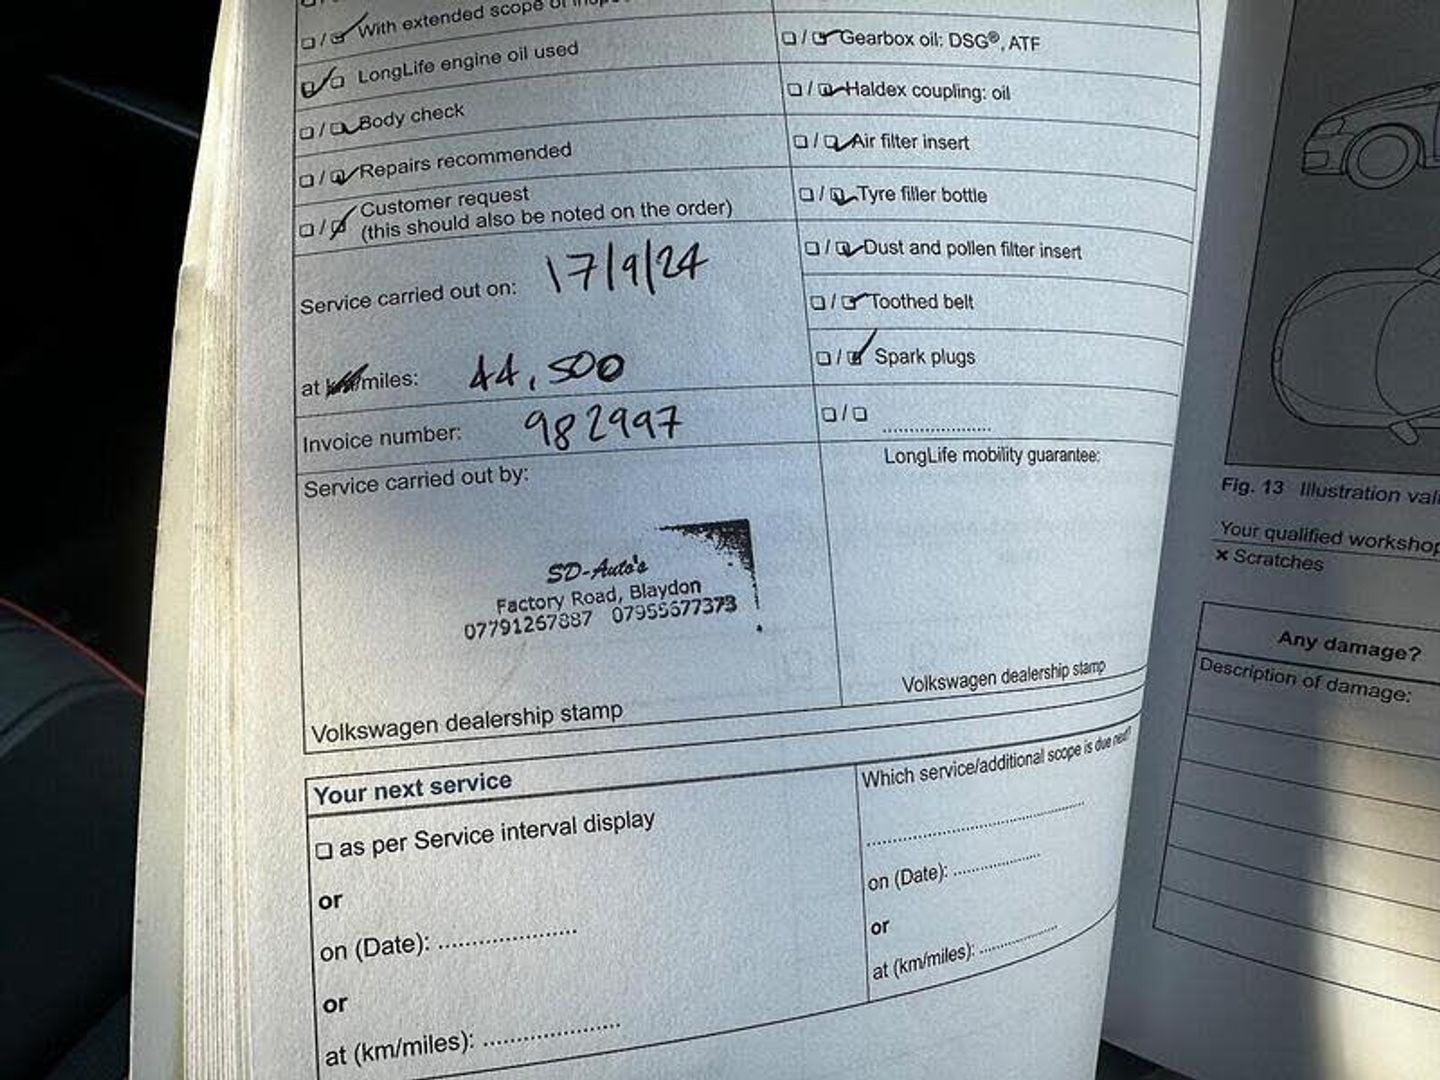 With extended scope of
LongLife engine oil used
Body check
Repairs recommended
Customer request
(this should also be noted on the order)
Service carried out on: 17/9/24
at km/miles: 44,500
Invoice number: 982997
Service carried out by:
SD-Auto's
Factory Road, Blaydon
07791267887 07955677373
Volkswagen dealership stamp
Gearbox oil: DSG®, ATF
Haldex coupling: oil
Air filter insert
Tyre filler bottle
Dust and pollen filter insert
Toothed belt
Spark plugs
LongLife mobility guarantee:
Volkswagen dealership stamp
Your next service
as per Service interval display
or
on (Date):
or
at (km/miles):
Which service/additional scope is due next?
on (Date):
or
at (km/miles):
Fig. 13 Illustration
Your qualified
× Scratches
Any damage?
Description of damage: